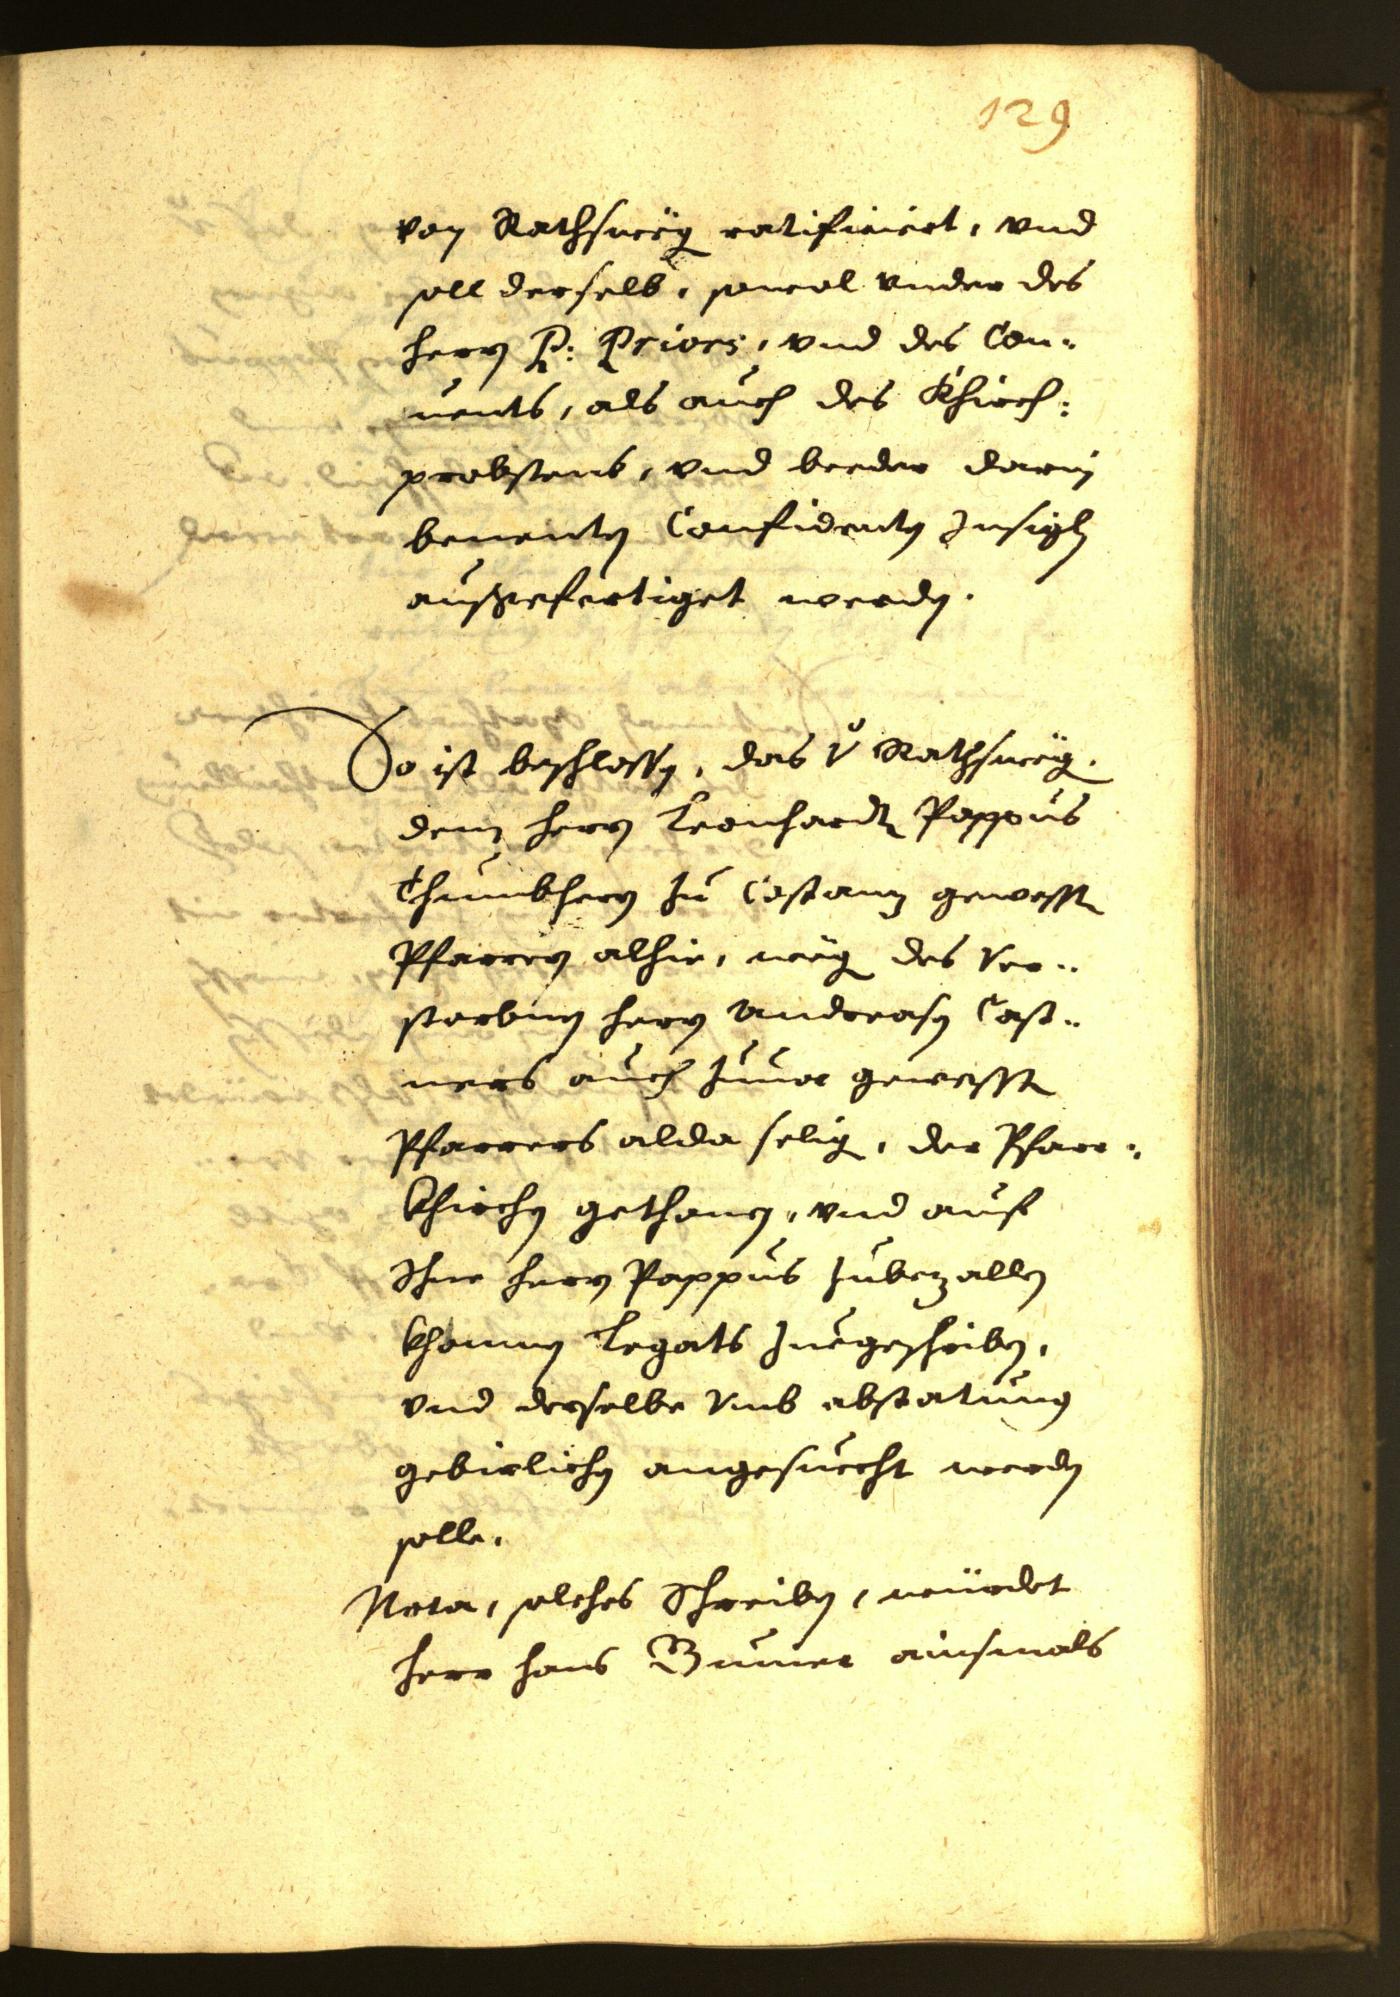 129
von Rathswëg ratificiert, vnd
soll derselb, sowol vnder des
herrn P: Priors, vnd des Con¬
uents, als auch des Khirch¬
probstens, vnd beeder darin
benenten Confidenten Insigln
außgefertiget werden.
So ist beschlossen, das v Rathswëg.
dem herrn Leonhardt Pappus
Thumbherrn zu Costanz gewesst
Pfarrern alhie, wëg des Ver¬
storbnen herrn Andreasen Cast¬
ners auch zuuor gewesst
Pfarrers alda selig, der Pfarr¬
Khirchen gethanen, vnd auf
Ihne herrn Pappus zubezallen
khomnen Legats zuegeschriben,
vnd derselbe vmb abstatung
gebirlichen angesuecht werden
solle.
Nota, solches Schreiben, würdet
herr hans ainsmals